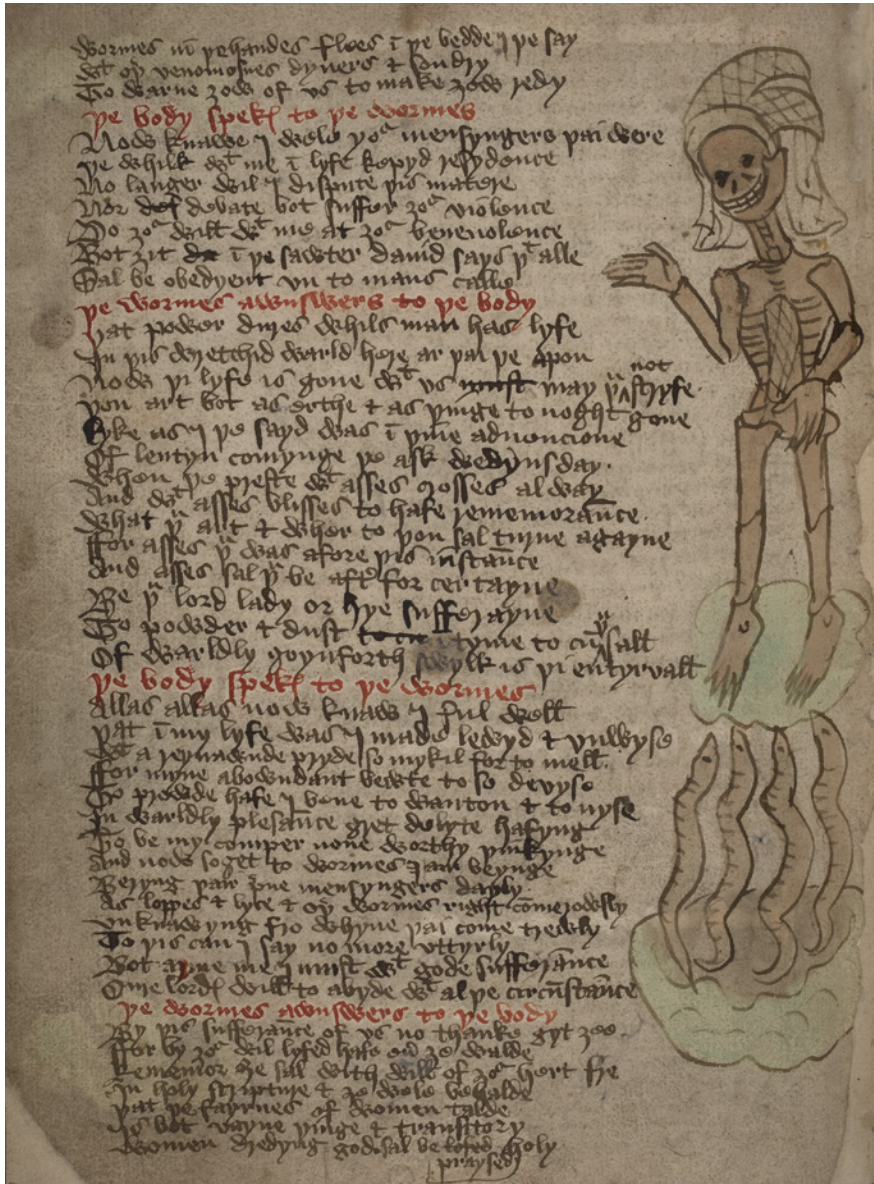 wormes in þe handes flees ī þe bedde I þe say
wᵗ oþ venomosnes dyuers & sondry
To warne ȝow of vs to make ȝow redy
þe body spekꝭ to þe wormes
Now knawe I wele ȝoʳ mensyngers þai were
þe whilk wᵗ me ī lyfe kepyd resydence
No langer wil I dispute þis matere
Nor debate bot suffer ȝoʳ violence
Do ȝoʳ will wᵗ me at ȝoʳ beneuolence
Bot ȝit ī þe sawter dauid says þᵗ alle
Sal be obedyent vn to mans calle
þe wormes awnswers to þe body
þat power dures whils man has lyfe
In þis wretchid warld here ar þai þe apon
Now þi lyfe is gone wᵗ vs may þᵘ not stryfe
þou art bot as erthe & as þinge to noght gone
lyke as I þe sayd was ī þine aduencione
Of lentyn comynge þe ask wedynsday
When þe preste wᵗ asses crosses al way
And wᵗ asses blisses to hafe rememorāce
What þᵘ art & wher to þou sal turne agayne
ffor asses þᵘ was afore þis instāce
And asses sal þᵘ be aftʳ for certayne
Be þᵘ lord lady or hye sufferayne
To powder & dust ī tyme to cū þᵘ sall
Of warldly goynforth swylk is þi entyrvall
þe body spekꝭ to þe wormes
Allas allas now knaw I ful well
þat ī my lyfe was I made lewyd & vnwyse
wᵗ a reynawnde pryde so mykil for to mell
ffor myne abowndant bewte to so devyse
To prowde hafe I bene to wanton & to nyse
In warldly plesāce gret delyte hafyng
To be my comper none worthy þinkynge
And now soget to wormes I am beynge
Beryng þair þne mensyngers dayly
As loppes & lyce & oþ wormes right cōmerowsly
vnknawyng fro whyne þai come trewly
To þis can I say no more vttyrly
Bot arme me I must wᵗ gode sufferāce
Oure lordꝭ will to abyde wᵗ al þe circūstāce
þe wormes awnswers to þe body
By þis sufferāce of vs no thanke gyt ȝee
ffor by ȝoʳ wil lyfed hafe ȝe walde
Rememor ȝe sal with will of ȝoʳ hert fre
In holy scripture & ȝe wele behalde
þat þe fayrnes of women talde
Is bot vayne þinge & transitory
Women dredyng god sal be holy
praysed